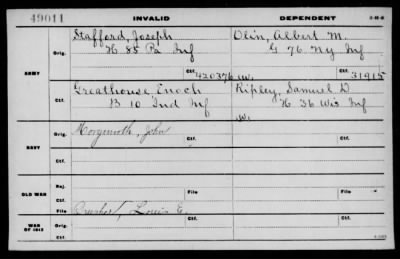 49011 INVALID DEPENDENT
Stafford, Joseph Olin, Albert M.
Orig. H 85 Pa Inf G 76 Ny Inf
ARMY Ctf. 420376 Ctf. 31915
Greathouse, Enoch Ripley, Samuel D
Ctf. B 10 Ind Inf H 36 Wis Inf
W.
Orig. Morgenroth, John
NAVY
Ctf. Ctf.
Rej.
OLD WAR File
Ctf.
File Louis E.
Orig.
WAR OF 1812
Ctf. Ctf.